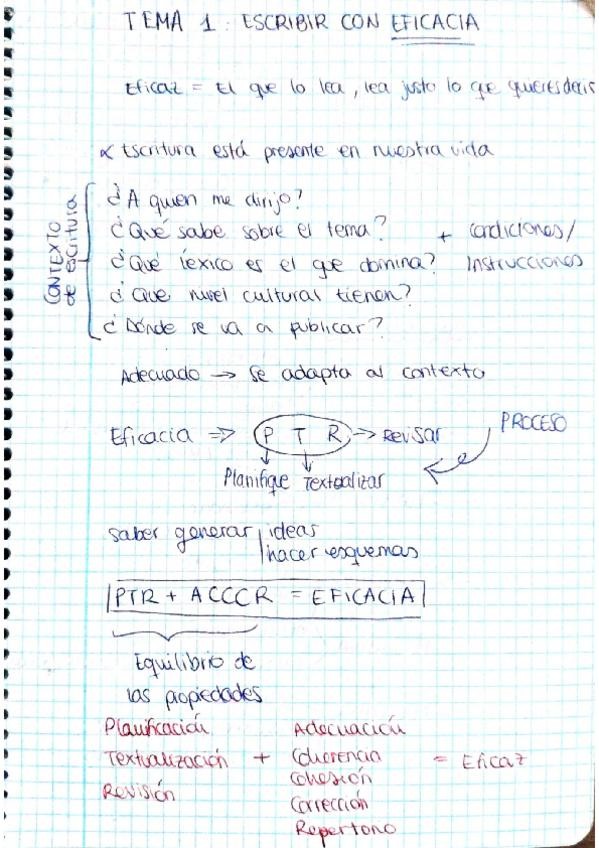 TEMA 1: ESCRIBIR CON EFICACIA
Eficaz = El que lo lea, lea justo lo que quieres decir
α Escritura está presente en nuestra vida
CONTEXTO
de escritura
¿A quien me dirijo?
¿Qué sabe sobre el tema? + condiciones/
¿Qué léxico es el que domina? instrucciones
¿Que nivel cultural tienen?
¿Dónde se va a publicar?
Adecuado → se adapta al contexto
Eficacia ⇒ P T R → Revisar PROCESO
Planifique Textualizar
saber generar ideas
hacer esquemas
PTR + ACCCR = EFICACIA
Equilibrio de
las propiedades
Planificación Adecuación
Textualización + Coherencia = Eficaz
Revisión Cohesión
Corrección
Repertorio